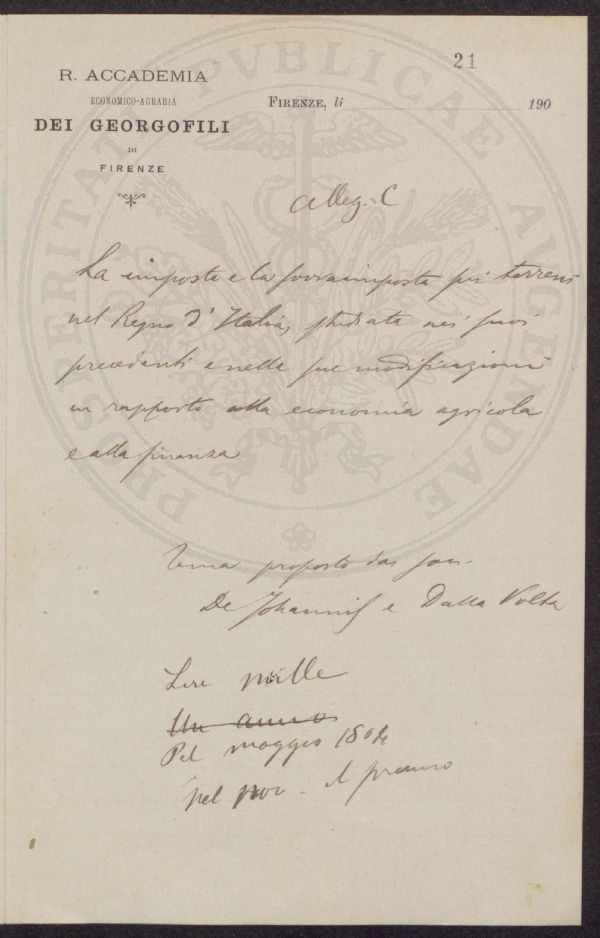 21
R. ACCADEMIA
ECONOMICO-AGRARIA
DEI GEORGOFILI
DI
FIRENZE
FIRENZE, li 190
PROSPERITATI PVBLICAE AVGENDAE
Alleg. C
La imposta e la sovraimposta sui terreni
nel Regno d'Italia, studiata nei suoi
precedenti e nelle sue modificazioni
in rapporto alla economia agricola
e alla finanza
Tema proposto dai
De Johannis e Dalla Volta
Lire mille
Un anno
Pel maggio
pel il premio